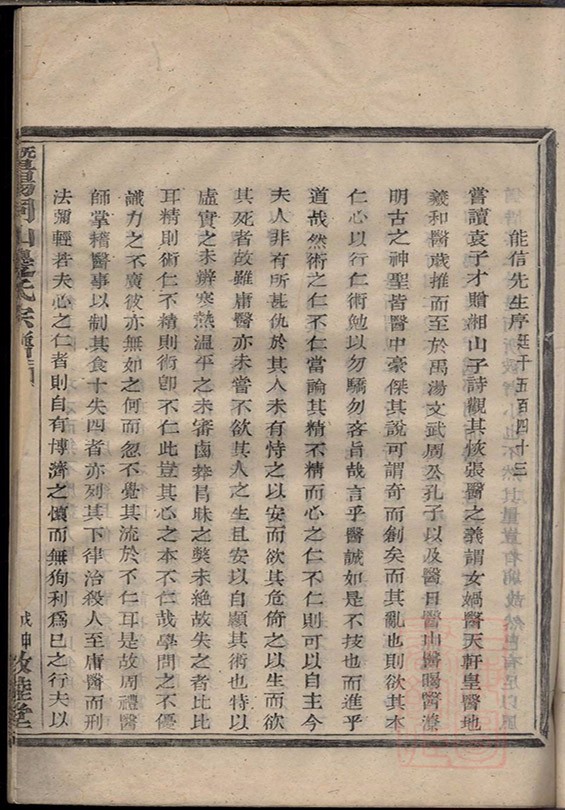 能信先生序 廷干五百四十三
嘗讀袁子才贈相山子詩觀其恢張醫之義謂女媧醫天軒皇醫地
羲和醫歲推而至於禹湯文武周公孔子以及醫日醫山醫暘醫潦
明古之神聖皆醫中豪傑其說可謂奇而創矣而其亂也則欲其本
仁心以行仁術勉以勿驕勿吝旨哉言乎醫誠如是不技也而進乎
道哉然術之仁不仁當論其精不精而心之仁不仁則可以自主今
夫人非有所甚仇於其人未有恃之以安而欲其危倚之以生而欲
其死者故雖庸醫亦未嘗不欲其人之生且安以自顯其術也特以
虛實之未辨寒熱溫平之未審鹵莽昌昧之獘未絶故失之者比比
耳精則術仁不精則術卽不仁此豈其心之本不仁哉學問之不優
識力之不廣彼亦無如之何而忽不覺其流於不仁耳是故周禮醫
師掌稽醫事以制其食十失四者亦列其下律治殺人至庸醫而刑
法彌輕若夫心之仁者則自有博濟之懷而無狥利為巳之行夫以
氏宗譜
敦睦堂